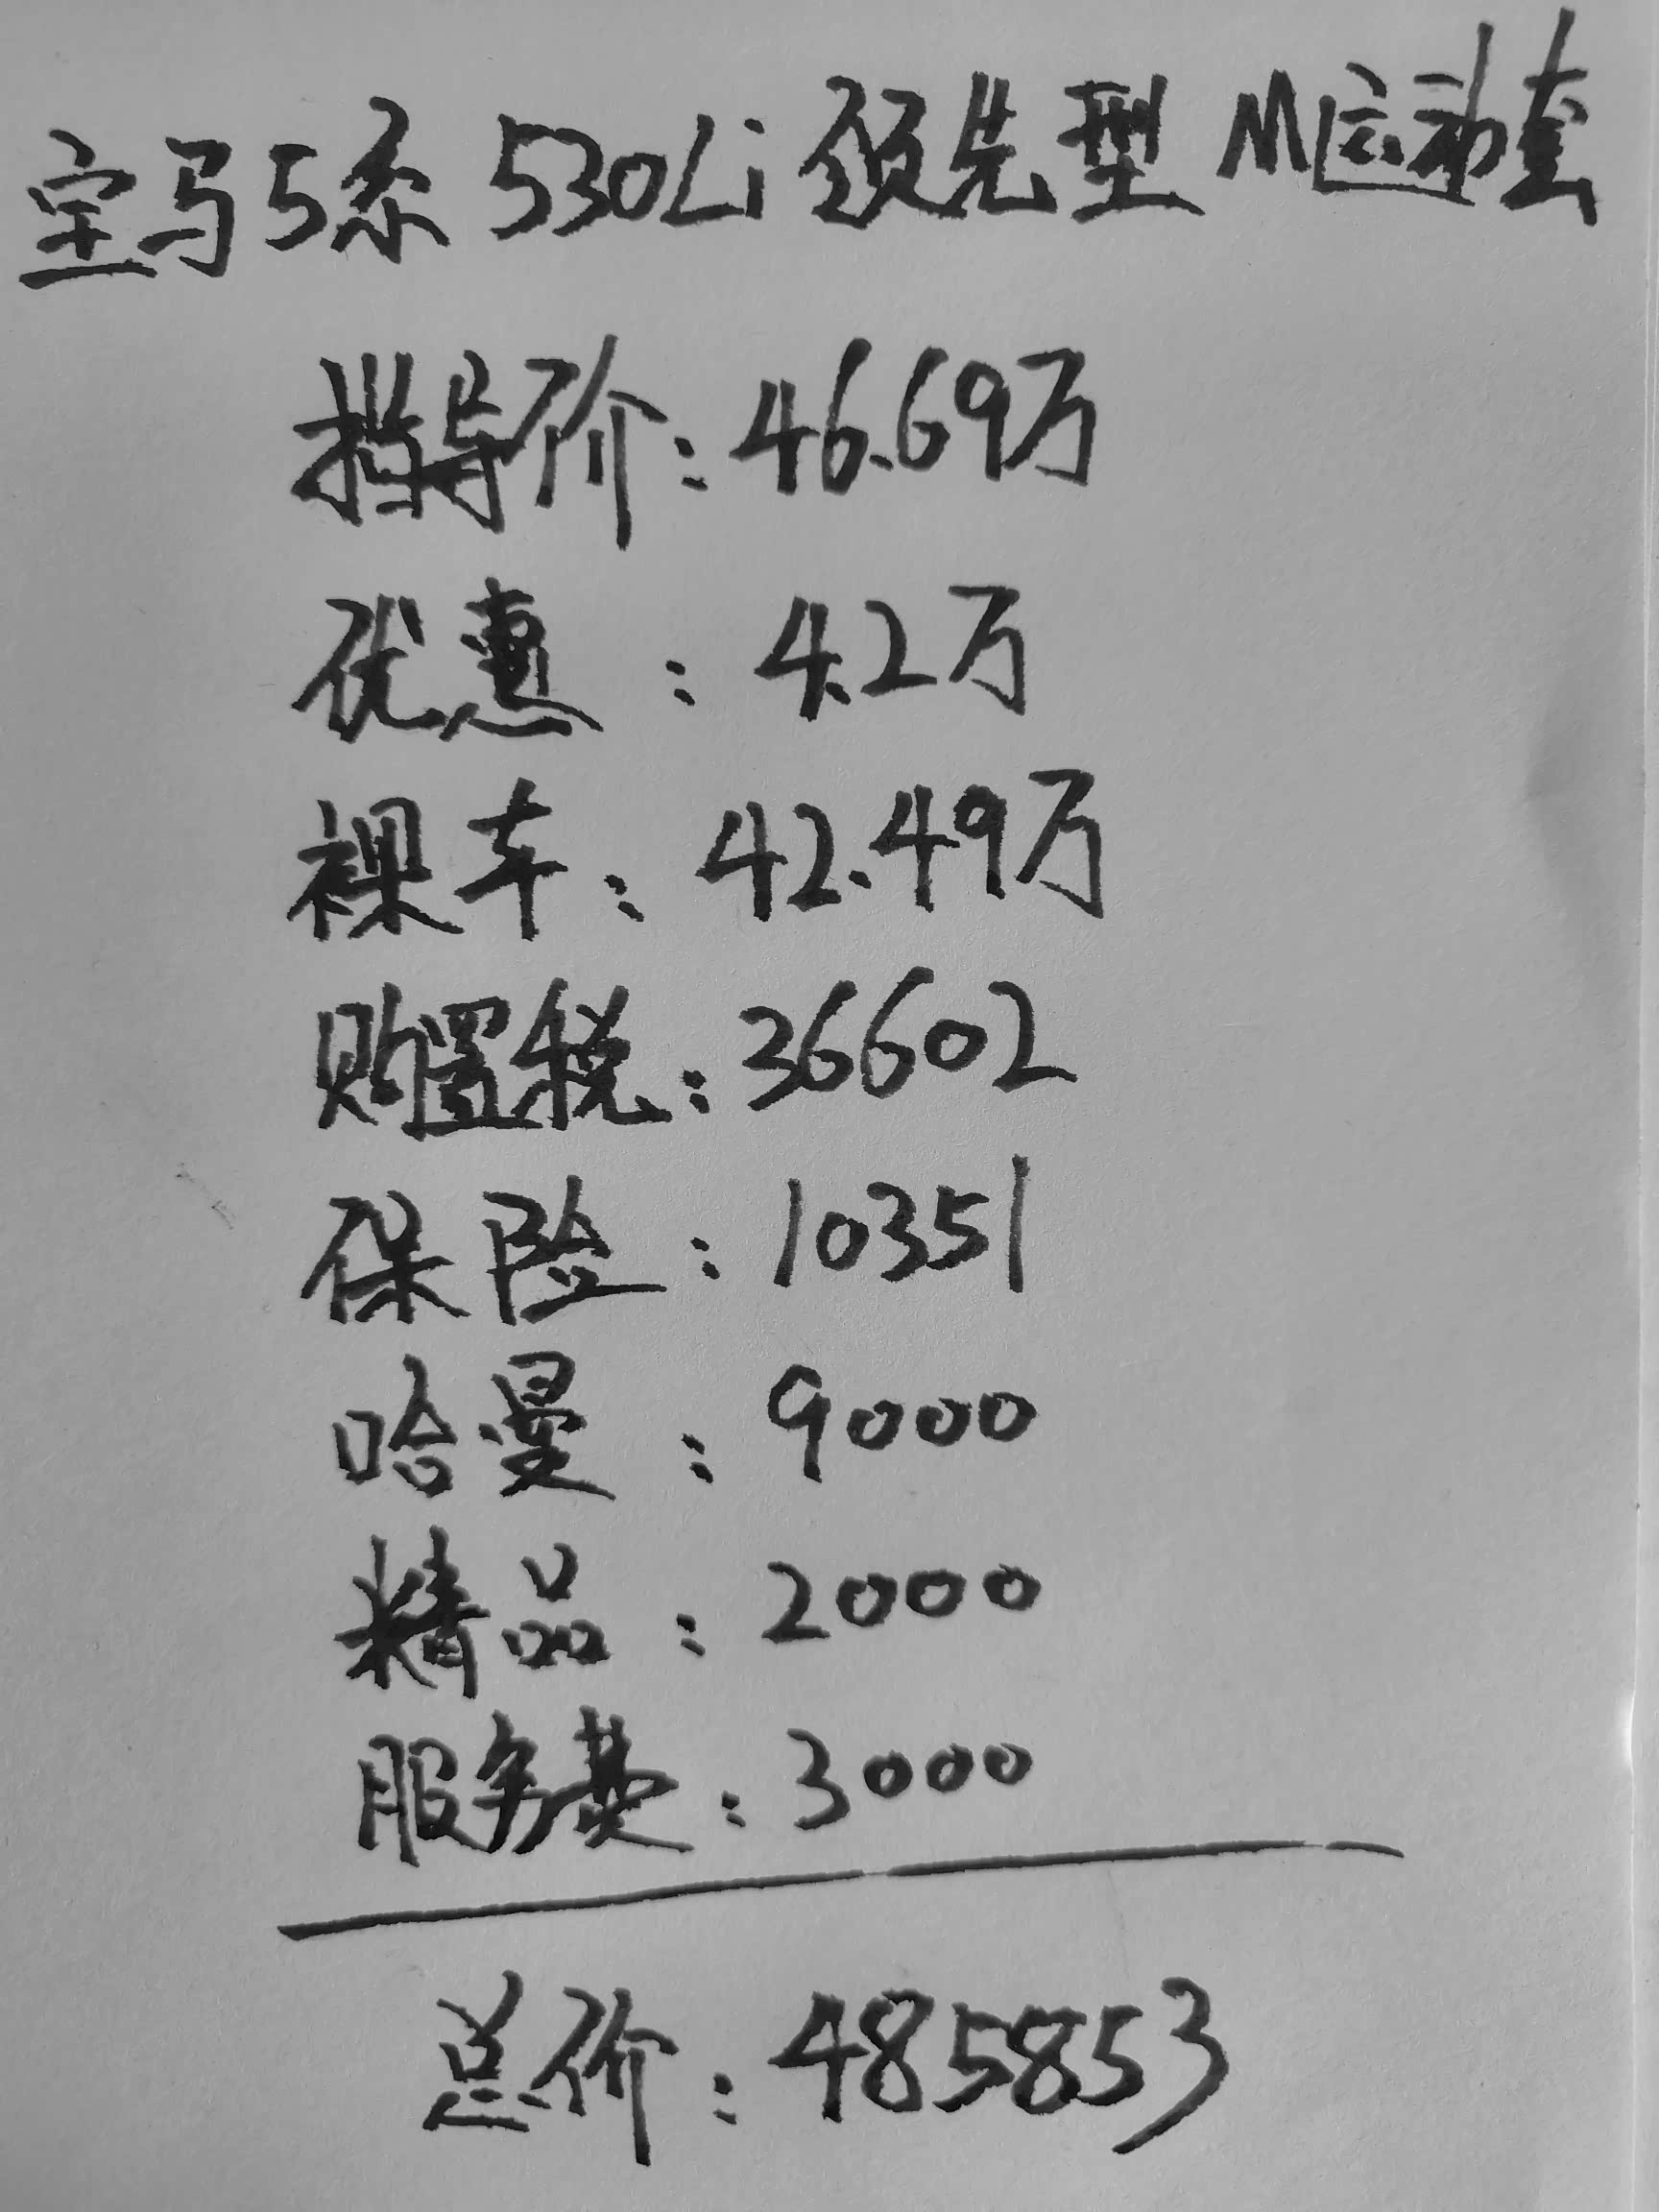 宝马5系 530Li 领先型 M运动套
指导价：46.69万
优惠：4.2万
裸车：42.49万
购置税：36602
保险：10351
哈曼：9000
精品：2000
服务费：3000
总价：485853